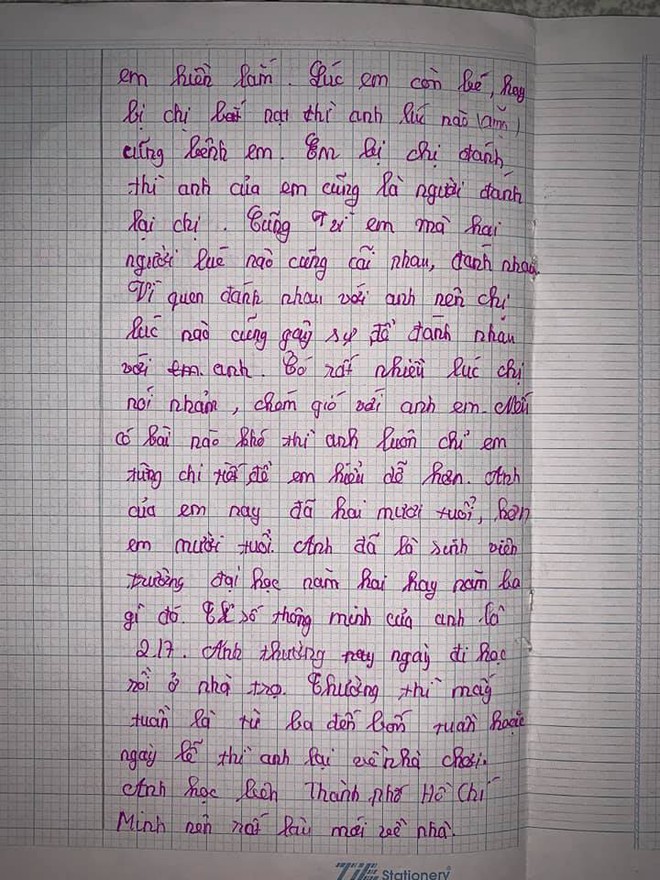 em hiền lắm. Lúc em còn bé, hay
bị chị bắt nạt thì anh lúc nào (anh)
cũng bênh em. Em bị chị đánh
thì anh của em cũng là người đánh
lại chị. Cũng vì em mà hai
người lúc nào cũng cãi nhau, đánh nhau.
Vì quen đánh nhau với anh nên chị
lúc nào cũng gây sự để đánh nhau
với em anh. Có rất nhiều lúc chị
nói nhảm, chém gió với anh em. Nếu
có bài nào khó thì anh luôn chỉ em
từng chi tiết để em hiểu dễ hơn. Anh
của em nay đã hai mươi tuổi, hơn
em mười tuổi. Anh đã là sinh viên
trường đại học năm hai hay năm ba
gì đó. Chỉ số thông minh của anh là
217. Anh thường ngày đi học
rồi ở nhà trọ. Thường thì mấy
tuần là từ ba đến bốn tuần hoặc
ngày lễ thì anh lại về nhà chơi.
Anh học bên Thành phố Hồ Chí
Minh nên rất lâu mới về nhà.
Stationery